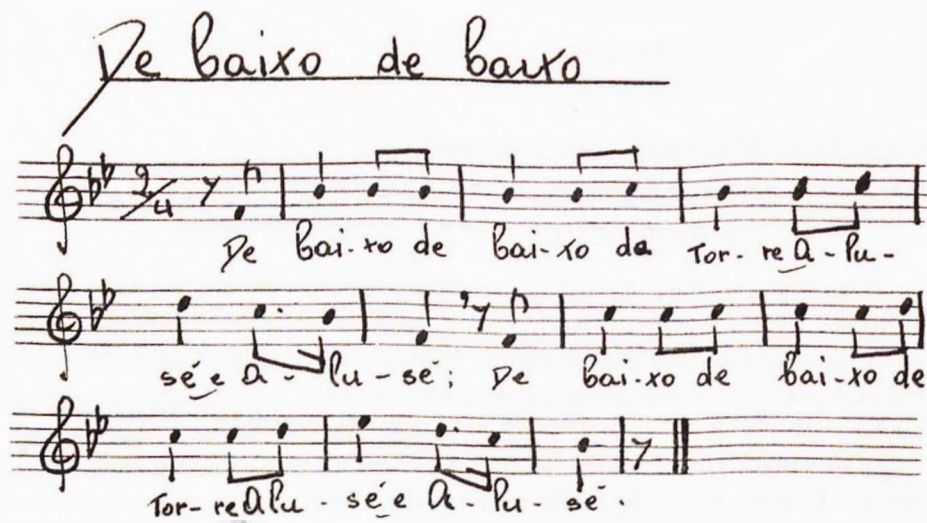 De baixo de baixo
2/4
De bai-xo de bai-xo da Tor-re A-lu-
sé e A-lu-sé; De bai-xo de bai-xo de
Tor-re A lu-sé e A-lu-sé.